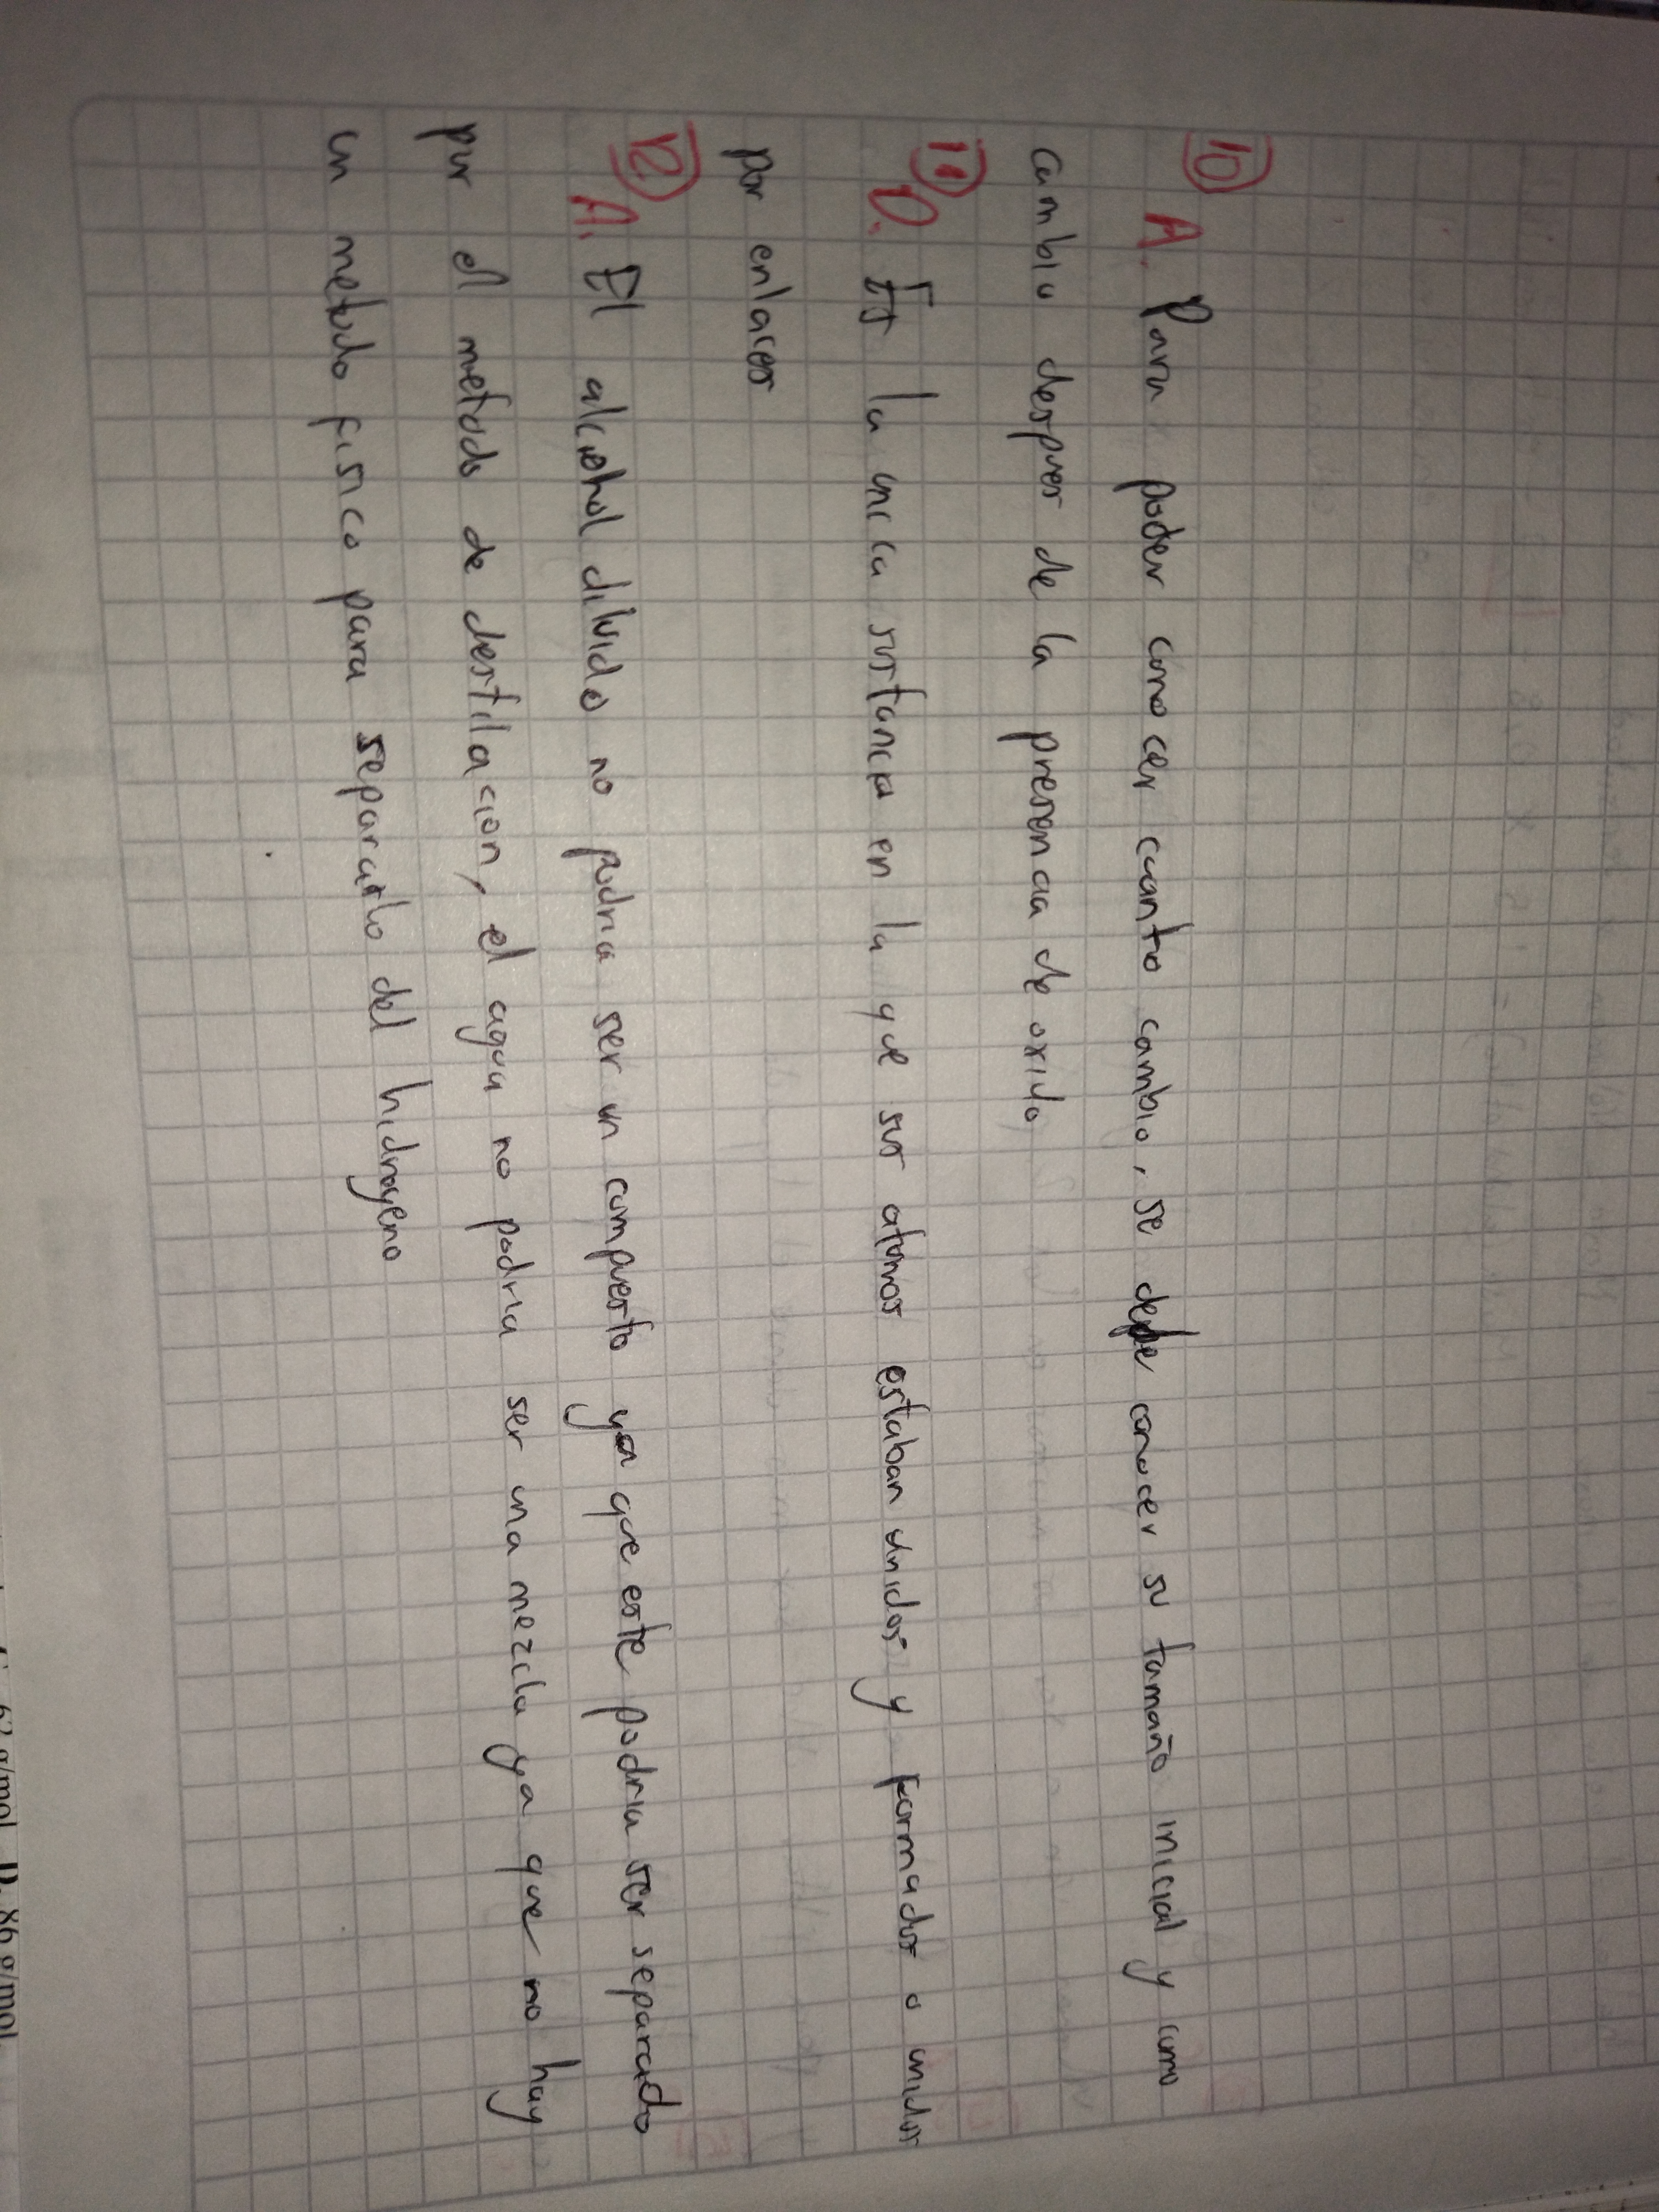 10 A. Para poder conocer cuanto cambio, se debe conocer su tamaño inicial y como
cambio despues de la presencia de oxido
11 D. Es la unica sustancia en la que sus atomos estaban unidos y formados o unidos
por enlaces
12 A. El alcohol diluido no podria ser un compuesto ya que este podria ser separado
por el metodo de destilacion, el agua no podria ser una mezcla ya que no hay
un metodo fisico para separarlo del hidrogeno
g/mol D. 86 g/mol